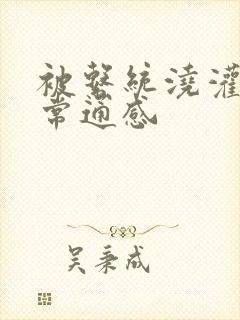 被系统浇灌
常通感
吴秉成